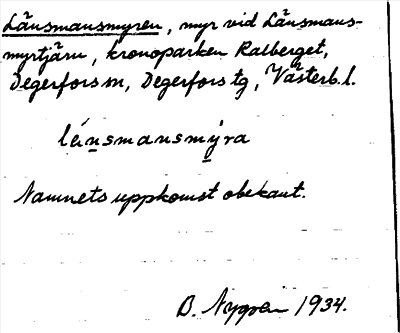 Länsmansmyren, myr vid Länsmans-
myrtjärn, kronoparken Ralberget,
Degerfors sn, Degerfors tg, Västerb. l.
länsmansmýra
Namnets uppkomst obekant.
B. Nygren 1934.